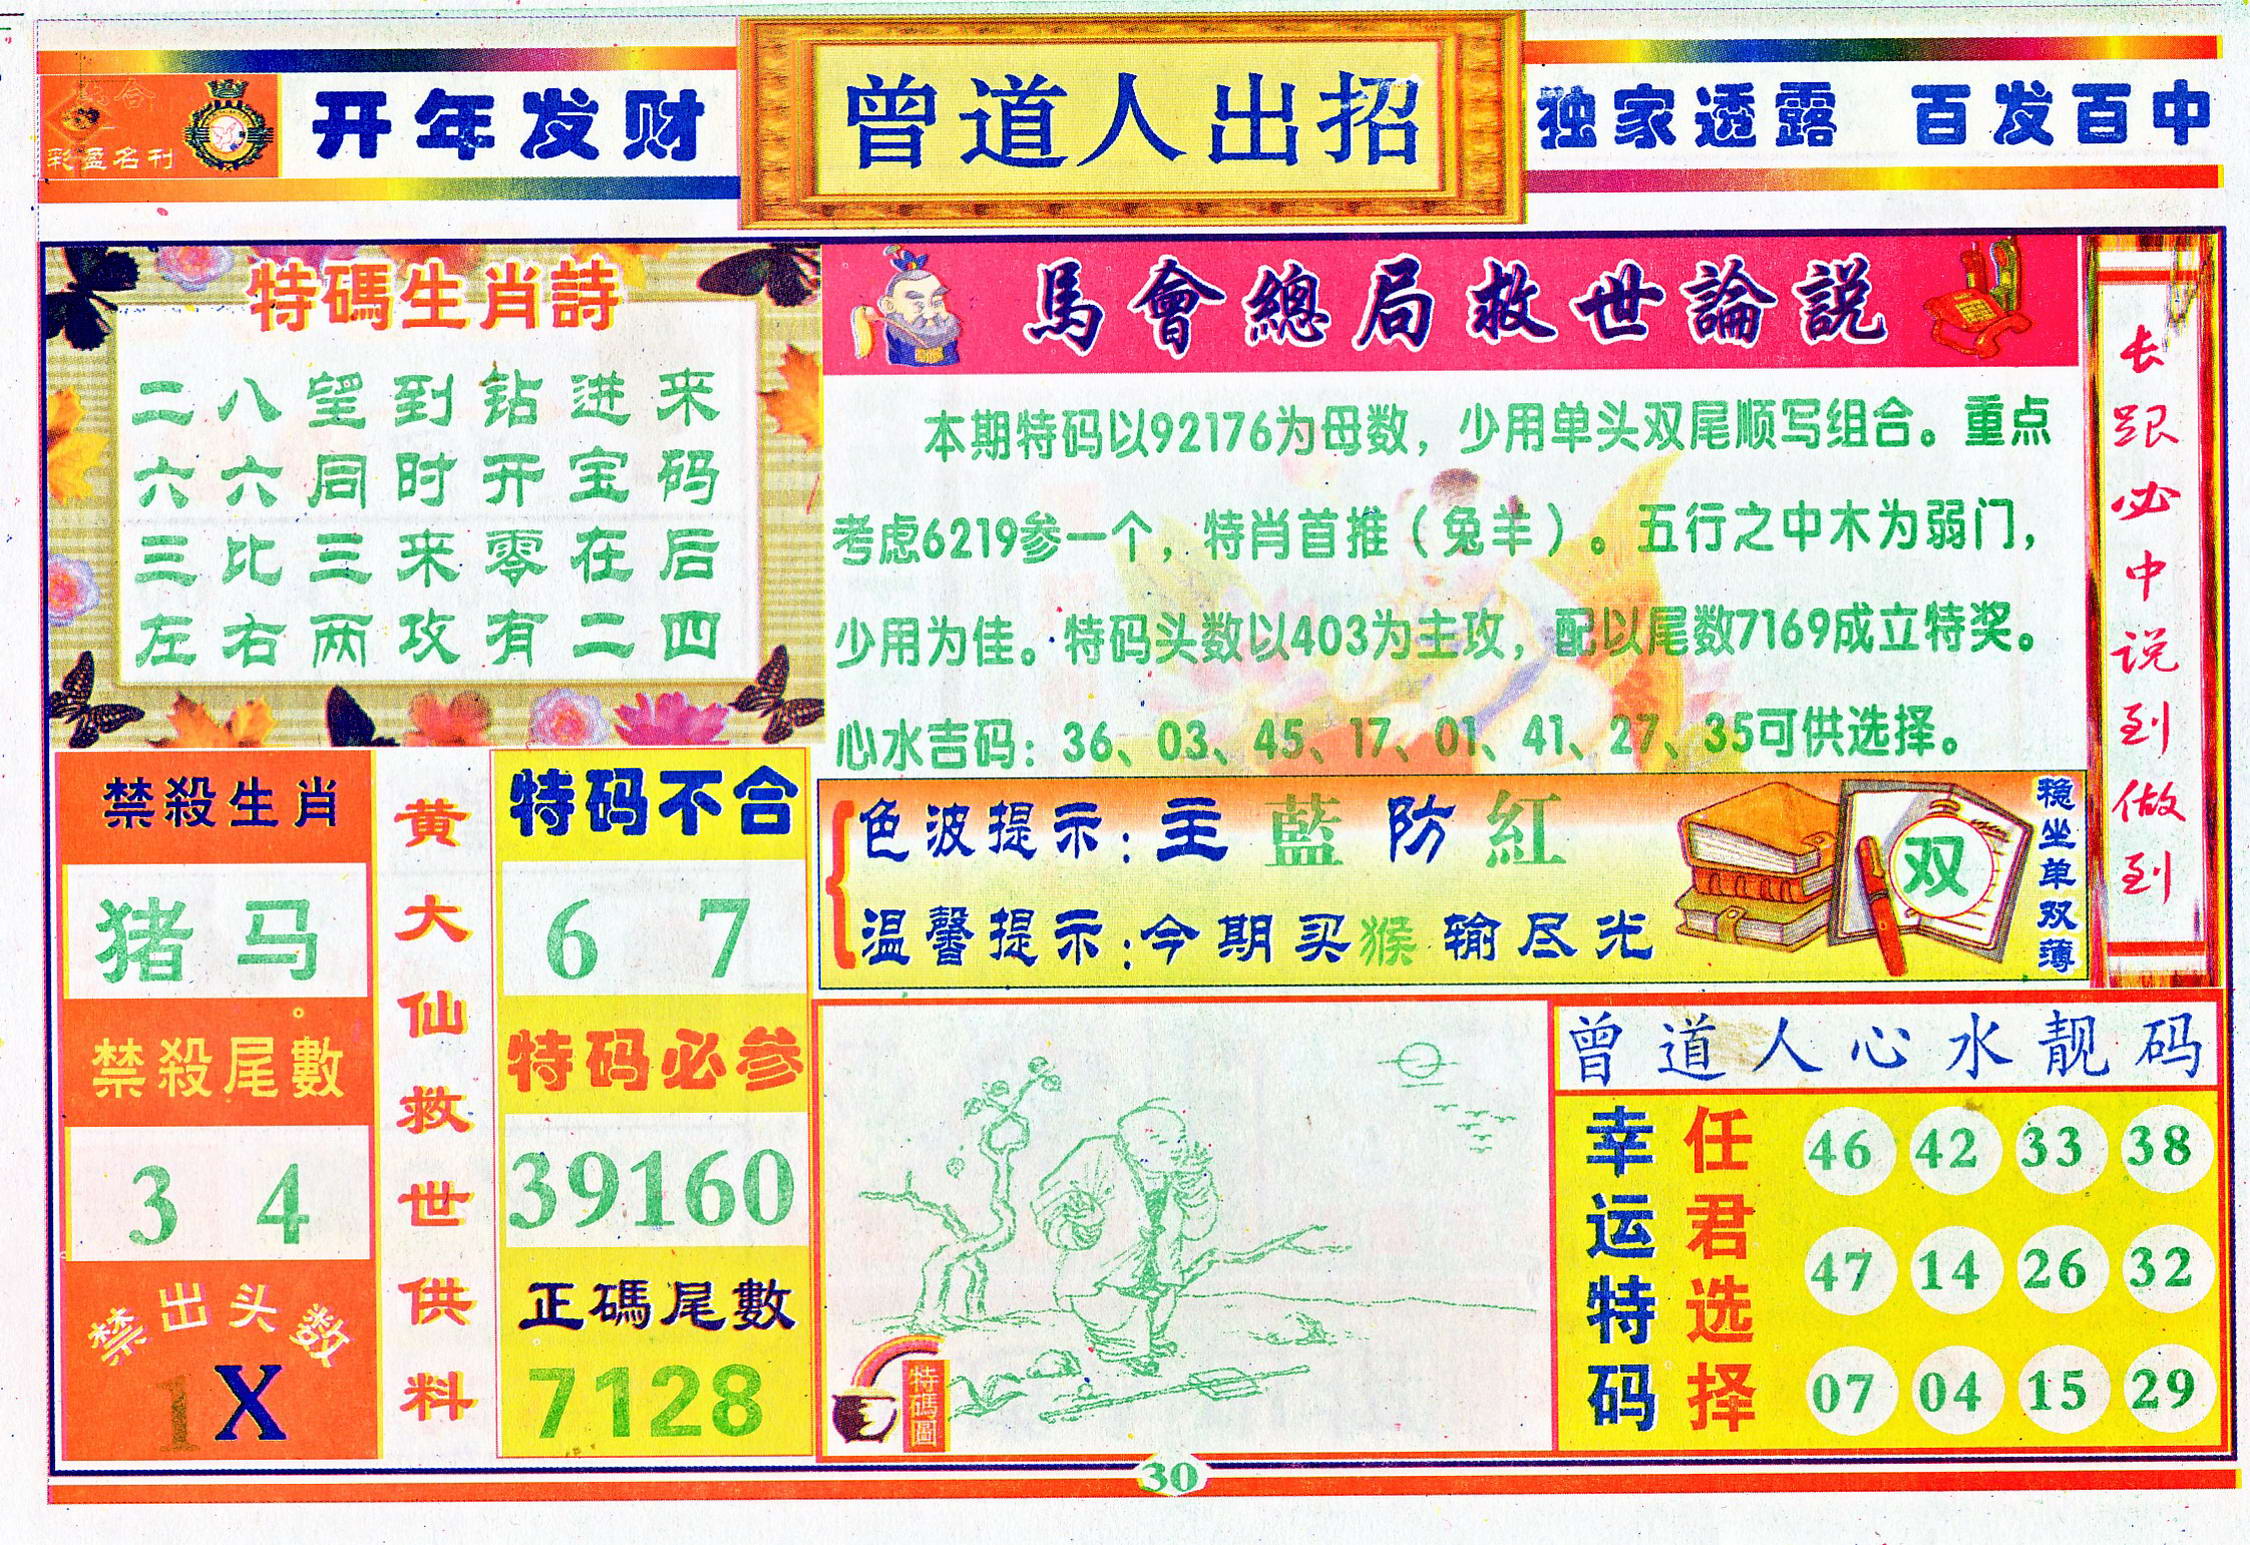 彩盈名刊
开年发财
曾道人出招
独家透露 百发百中
特碼生肖詩
二八望到钻进来
六六同时开宝码
三比三来零在后
左右两攻有二四
馬會總局救世論説
本期特码以92176为母数，少用单头双尾顺写组合。重点
考虑6219参一个，特肖首推（兔羊）。五行之中木为弱门，
少用为佳。特码头数以403为主攻，配以尾数7169成立特奖。
心水吉码：36、03、45、17、01、41、27、35可供选择。
长跟必中说到做到
禁殺生肖
猪 马
禁殺尾數
3 4
禁出头数
1X
黄大仙救世供料
特码不合
6 7
特码必参
39160
正碼尾數
7128
色波提示:主藍防紅
温馨提示:今期买猴输尽光
双
稳坐单双薄
特碼圖
曾道人心水靓码
幸运特码
任君选择
46 42 33 38
47 14 26 32
07 04 15 29
30